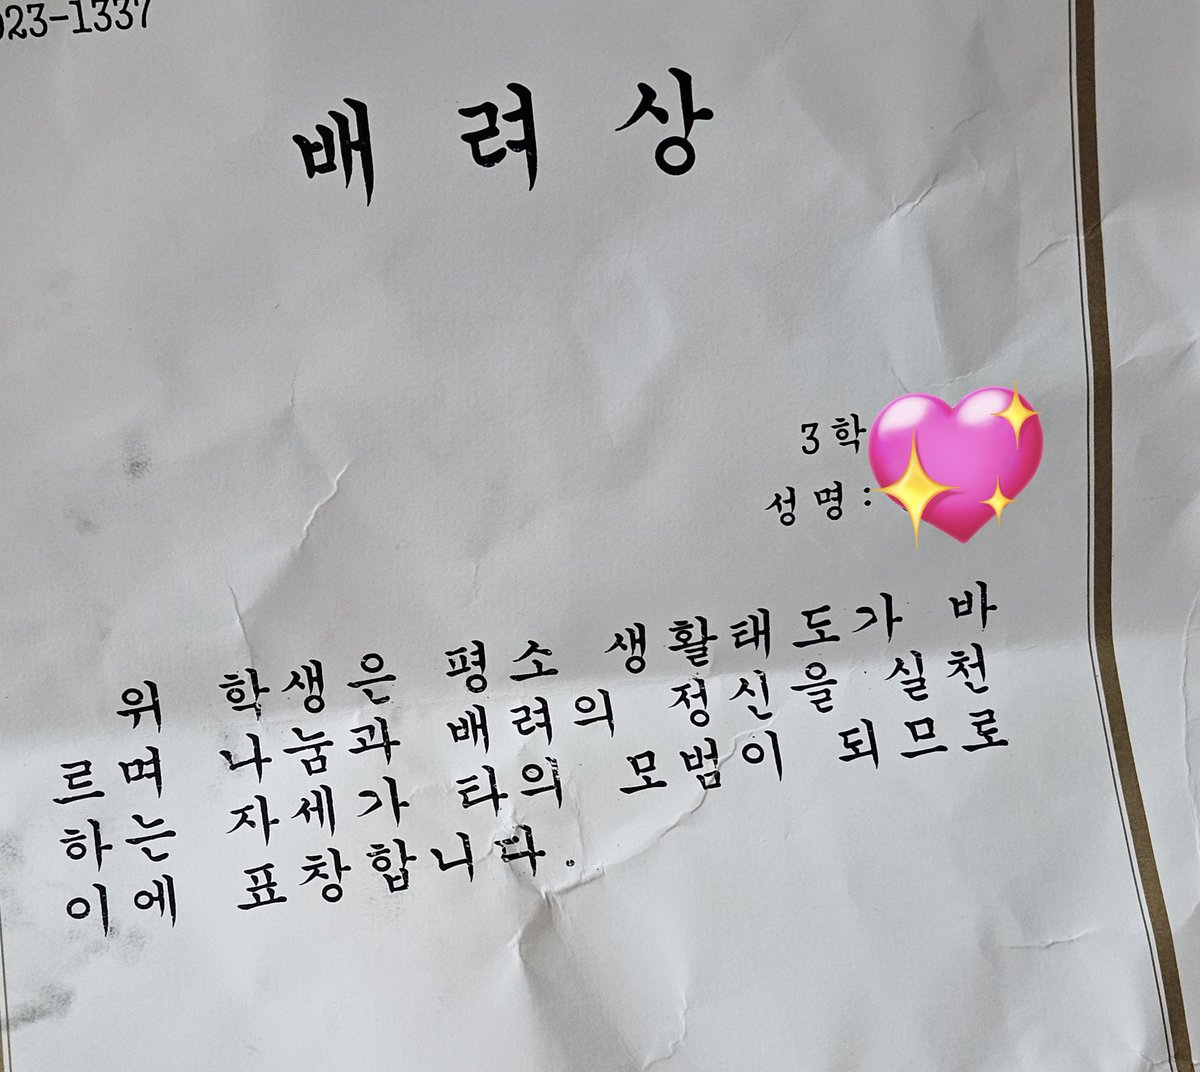 023-1337
배려상
3학
성명:
위 학생은 평소 생활태도가 바
르며 나눔과 배려의 정신을 실천
하는 자세가 타의 모범이 되므로
이에 표창합니다.